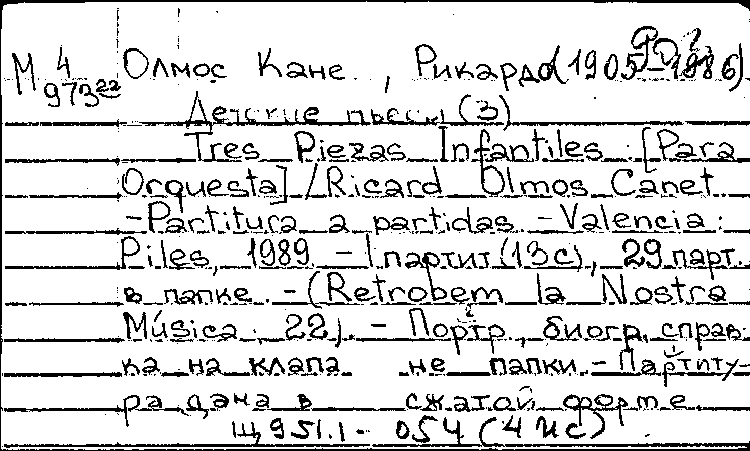 М 4 Олмос Кане , Рикардо (1905–1986)
973²²
Детские пьесы (3)
Tres Piezas Infantiles : [Para
Orquesta] / Ricard Olmos Canet
- Partitura a partidas. - Valencia :
Piles, 1989. - 1 партит (13 с), 29 парт.
в папке. - (Retrobem la Nostra
Música ; 22). - Портр., биогр. справ-
ка на клапа не папки. - Партиту-
ра дана в сжатой форме.
Щ951.1- 054 (4Ис)